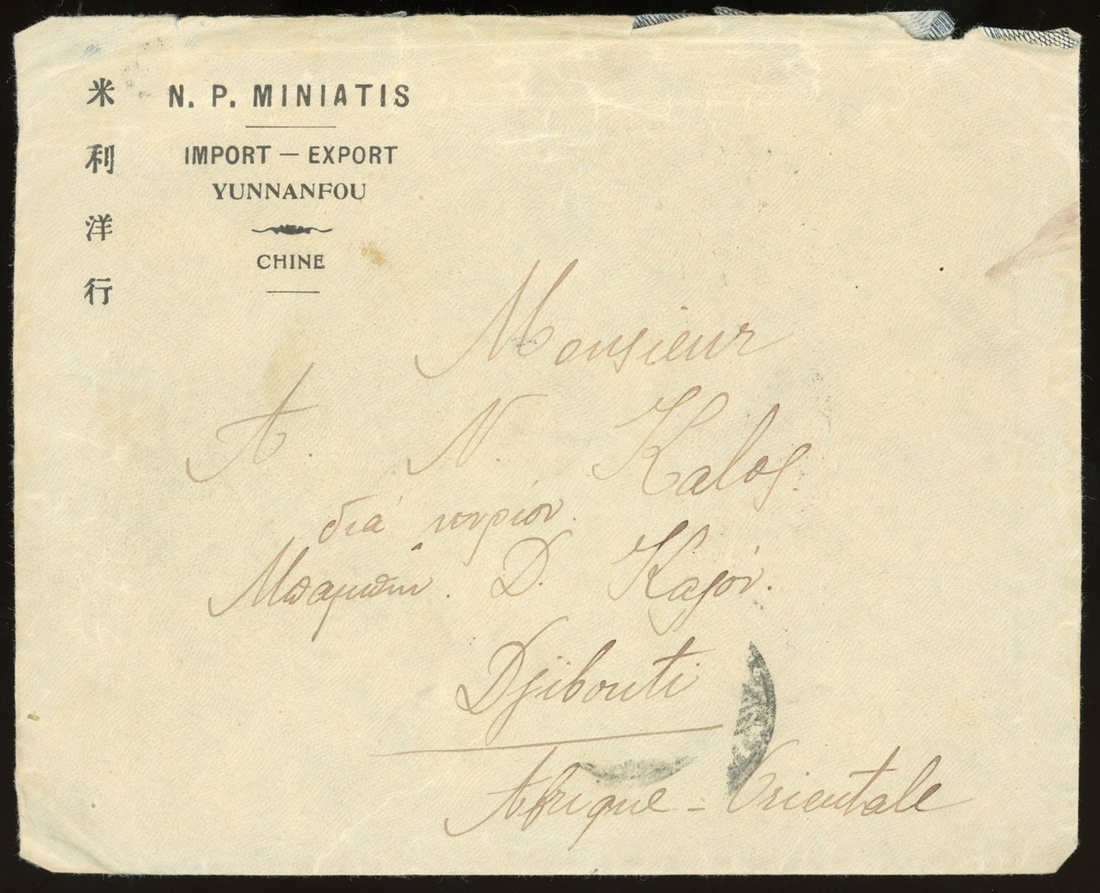 米利洋行
N. P. MINIATIS
IMPORT — EXPORT
YUNNANFOU
CHINE
Monsieur
A. N. Kalos
διά
D.
Djibouti
Afrique = Orientale